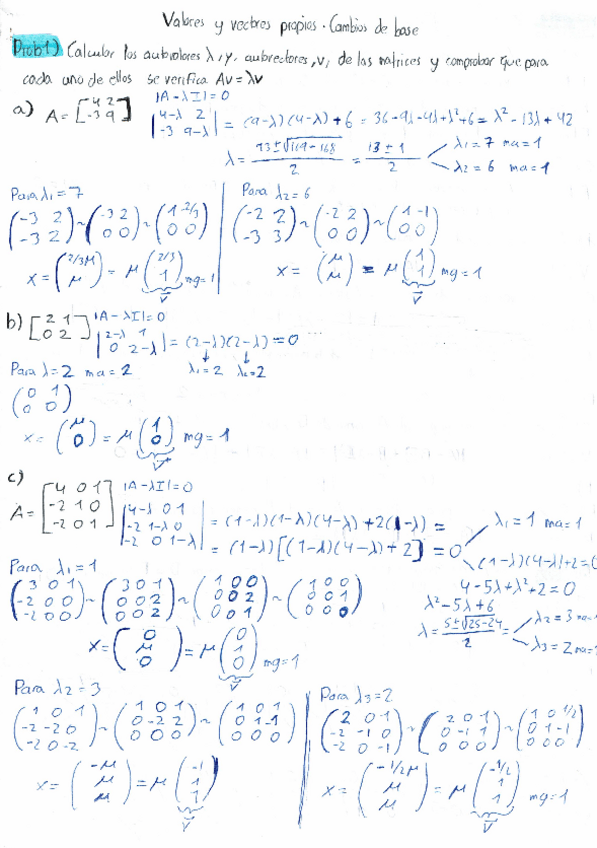 Valores y vectores propios. Cambios de base
Prob1) Calcular los autovalores λ, y, autovectores, v, de las matrices y comprobar que para
cada uno de ellos se verifica Av=λv
a) A = [4 2; -3 9] |A-λI|=0
|4-λ 2; -3 9-λ| = (9-λ)(4-λ)+6 = 36-9λ-4λ+λ²+6 = λ²-13λ+42
λ = 13±√169-168 / 2 = 13±1 / 2
λ₁=7 ma=1
λ₂=6 ma=1
Para λ₁=7
(-3 2; -3 2) ~ (-3 2; 0 0) ~ (1 -2/3; 0 0)
x = (2/3μ; μ) = μ (2/3; 1) mg=1
v
Para λ₂=6
(-2 2; -3 3) ~ (-2 2; 0 0) ~ (1 -1; 0 0)
x = (μ; μ) = μ (1; 1) mg=1
v
b) [2 1; 0 2] |A-λI|=0
|2-λ 1; 0 2-λ| = (2-λ)(2-λ) = 0
λ₁=2 λ₂=2
Para λ=2 ma=2
(0 1; 0 0)
x = (μ; 0) = μ (1; 0) mg=1
v
c) A = [4 0 1; -2 1 0; -2 0 1] |A-λI|=0
|4-λ 0 1; -2 1-λ 0; -2 0 1-λ| = (1-λ)(1-λ)(4-λ)+2(1-λ) =
= (1-λ)[(1-λ)(4-λ)+2] = 0
λ₁=1 ma=1
(1-λ)(4-λ)+2=0
4-5λ+λ²+2=0
λ²-5λ+6
λ = 5±√25-24 / 2
λ₂=3 ma=
λ₃=2 ma=
Para λ₁=1
(3 0 1; -2 0 0; -2 0 0) ~ (3 0 1; 0 0 2; 0 0 2) ~ (1 0 0; 0 0 2; 0 0 1) ~ (1 0 0; 0 0 1; 0 0 0)
x = (0; μ; 0) = μ (0; 1; 0) mg=1
v
Para λ₂=3
(1 0 1; -2 -2 0; -2 0 -2) ~ (1 0 1; 0 -2 2; 0 0 0) ~ (1 0 1; 0 1 -1; 0 0 0)
x = (-μ; μ; μ) = μ (-1; 1; 1)
v
Para λ₃=2
(2 0 1; -2 -1 0; -2 0 -1) ~ (2 0 1; 0 -1 1; 0 0 0) ~ (1 0 1/2; 0 1 -1; 0 0 0)
x = (-1/2μ; μ; μ) = μ (-1/2; 1; 1) mg=1
v